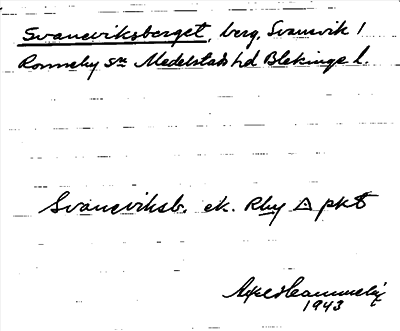 Svaneviksberget, berg, Svanevik 1
Ronneby sn Medelstads hd Blekinge l.
Svaneviksb. ek. Rby △ pkt
1943